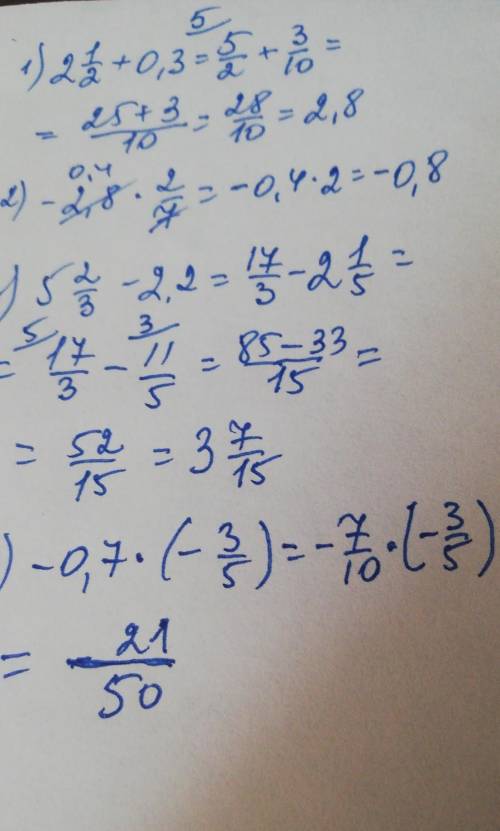 1) 2 1/2 + 0,3 = 5/2 + 3/10 =
= 25+3/10 = 28/10 = 2,8
2) -2,8 · 2/7 = -0,4·2 = -0,8
) 5 2/3 - 2,2 = 17/3 - 2 1/5 =
= 17/3 - 11/5 = 85-33/15 =
= 52/15 = 3 7/15
) -0,7·(-3/5) = -7/10·(-3/5)
= 21/50